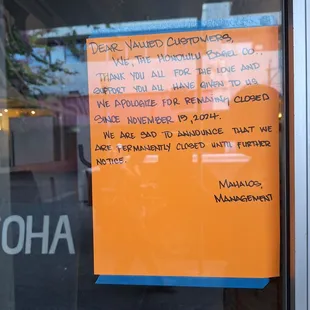 DEAR VALUED CUSTOMERS,
WE, THE HONOLULU BAGEL CO..
THANK YOU ALL FOR THE LOVE AND
SUPPORT YOU ALL HAVE GIVEN TO US
WE APOLOGIZE FOR REMAINING CLOSED
SINCE NOVEMBER 19, 2024.
WE ARE SAD TO ANNOUNCE THAT WE
ARE PERMANENTLY CLOSED UNTIL FURTHER
NOTICE.
MAHALOS,
MANAGEMENT
OHA